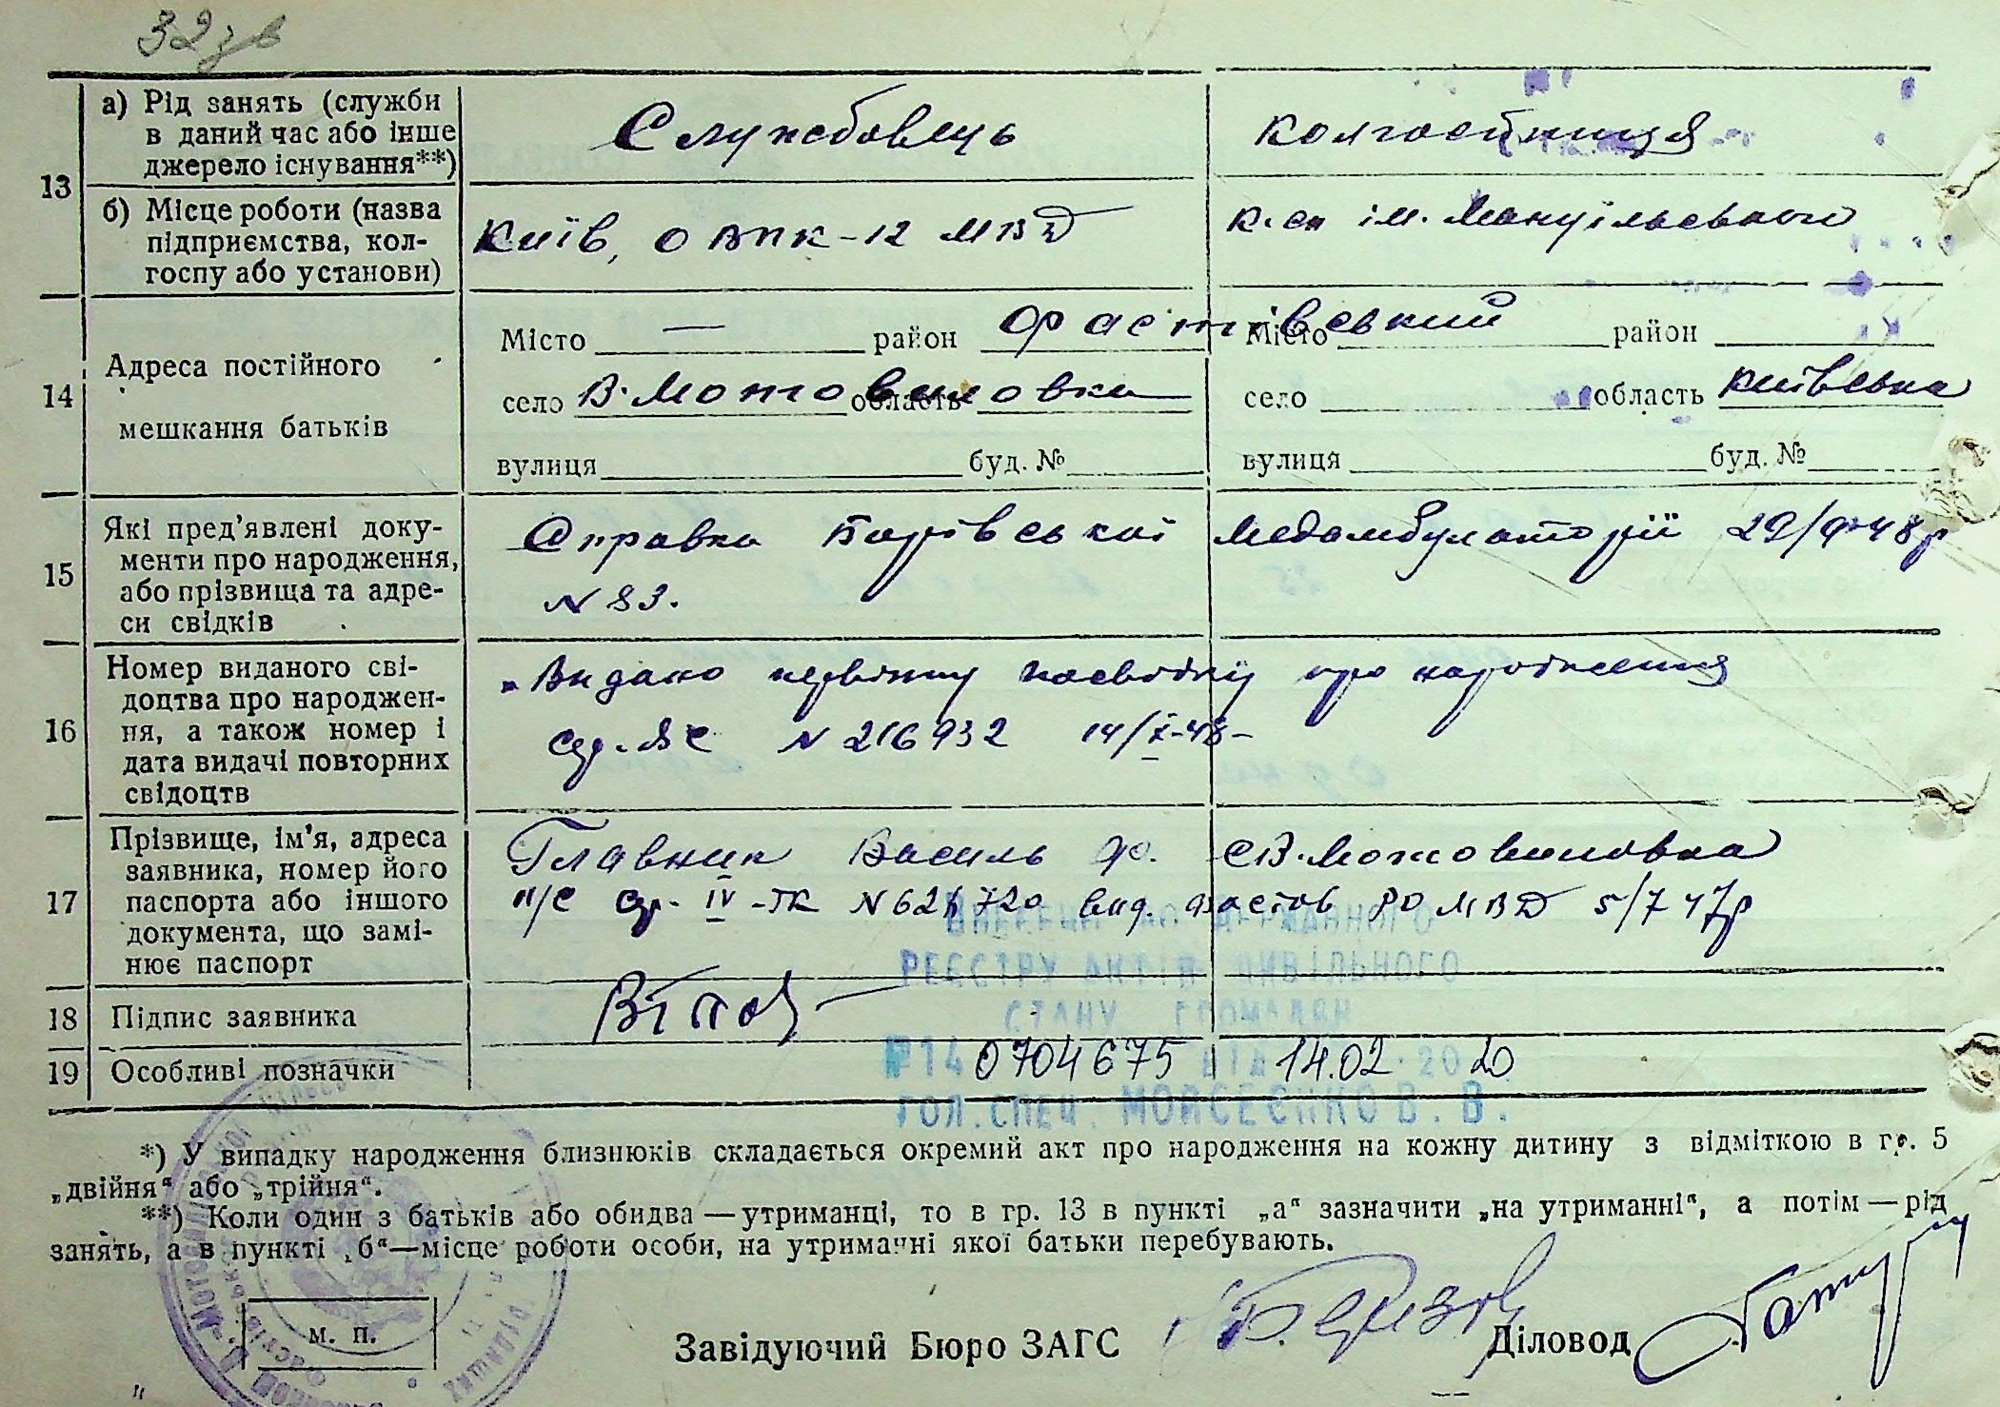 32 зв
13
а) Рід занять (служби
в даний час або інше
джерело існування**)
Службовець
колгоспниця
б) Місце роботи (назва
підприємства, кол-
госпу або установи)
Київ, ОВПК-12 МВД
к-сп ім. Мануільського
14
Адреса постійного
мешкання батьків
Місто — район Фастівський
Місто район
село В. Мотовиловка область
село область Київська
вулиця буд. №
вулиця буд. №
15
Які пред'явлені доку-
менти про народження,
або прізвища та адре-
си свідків
Справка Борівської медамбулаторії
N 83.
16
Номер виданого сві-
доцтва про народжен-
ня, а також номер і
дата видачі повторних
свідоцтв
Видано первінну посвідку про народження
N 216932 14/X-48-
17
Прізвище, ім'я, адреса
заявника, номер його
паспорта або іншого
документа, що замі-
нює паспорт
Главник Василь с В. Мотовиловка
п/с IV-ТК вид. Фастов РО МВД 5/7 47р
ВНЕСЕНИЙ ДО ДЕРЖАВНОГО
РЕЄСТРУ АКТІВ ЦИВІЛЬНОГО
СТАНУ ГРОМАДЯН
18
Підпис заявника
19
Особливі позначки
№14 0704675 ВІД 14.02.2020
ГОЛ.СПЕЦ. МОЙСЕЄНКО В. В.
*) У випадку народження близнюків складається окремий акт про народження на кожну дитину з відміткою в гр. 5
„двійня“ або „трійня“.
**) Коли один з батьків або обидва — утриманці, то в гр. 13 в пункті „а“ зазначити „на утриманні“, а потім — рід
занять, а в пункті „б“—місце роботи особи, на утриманні якої батьки перебувають.
м. п.
Завідуючий Бюро ЗАГС
Діловод